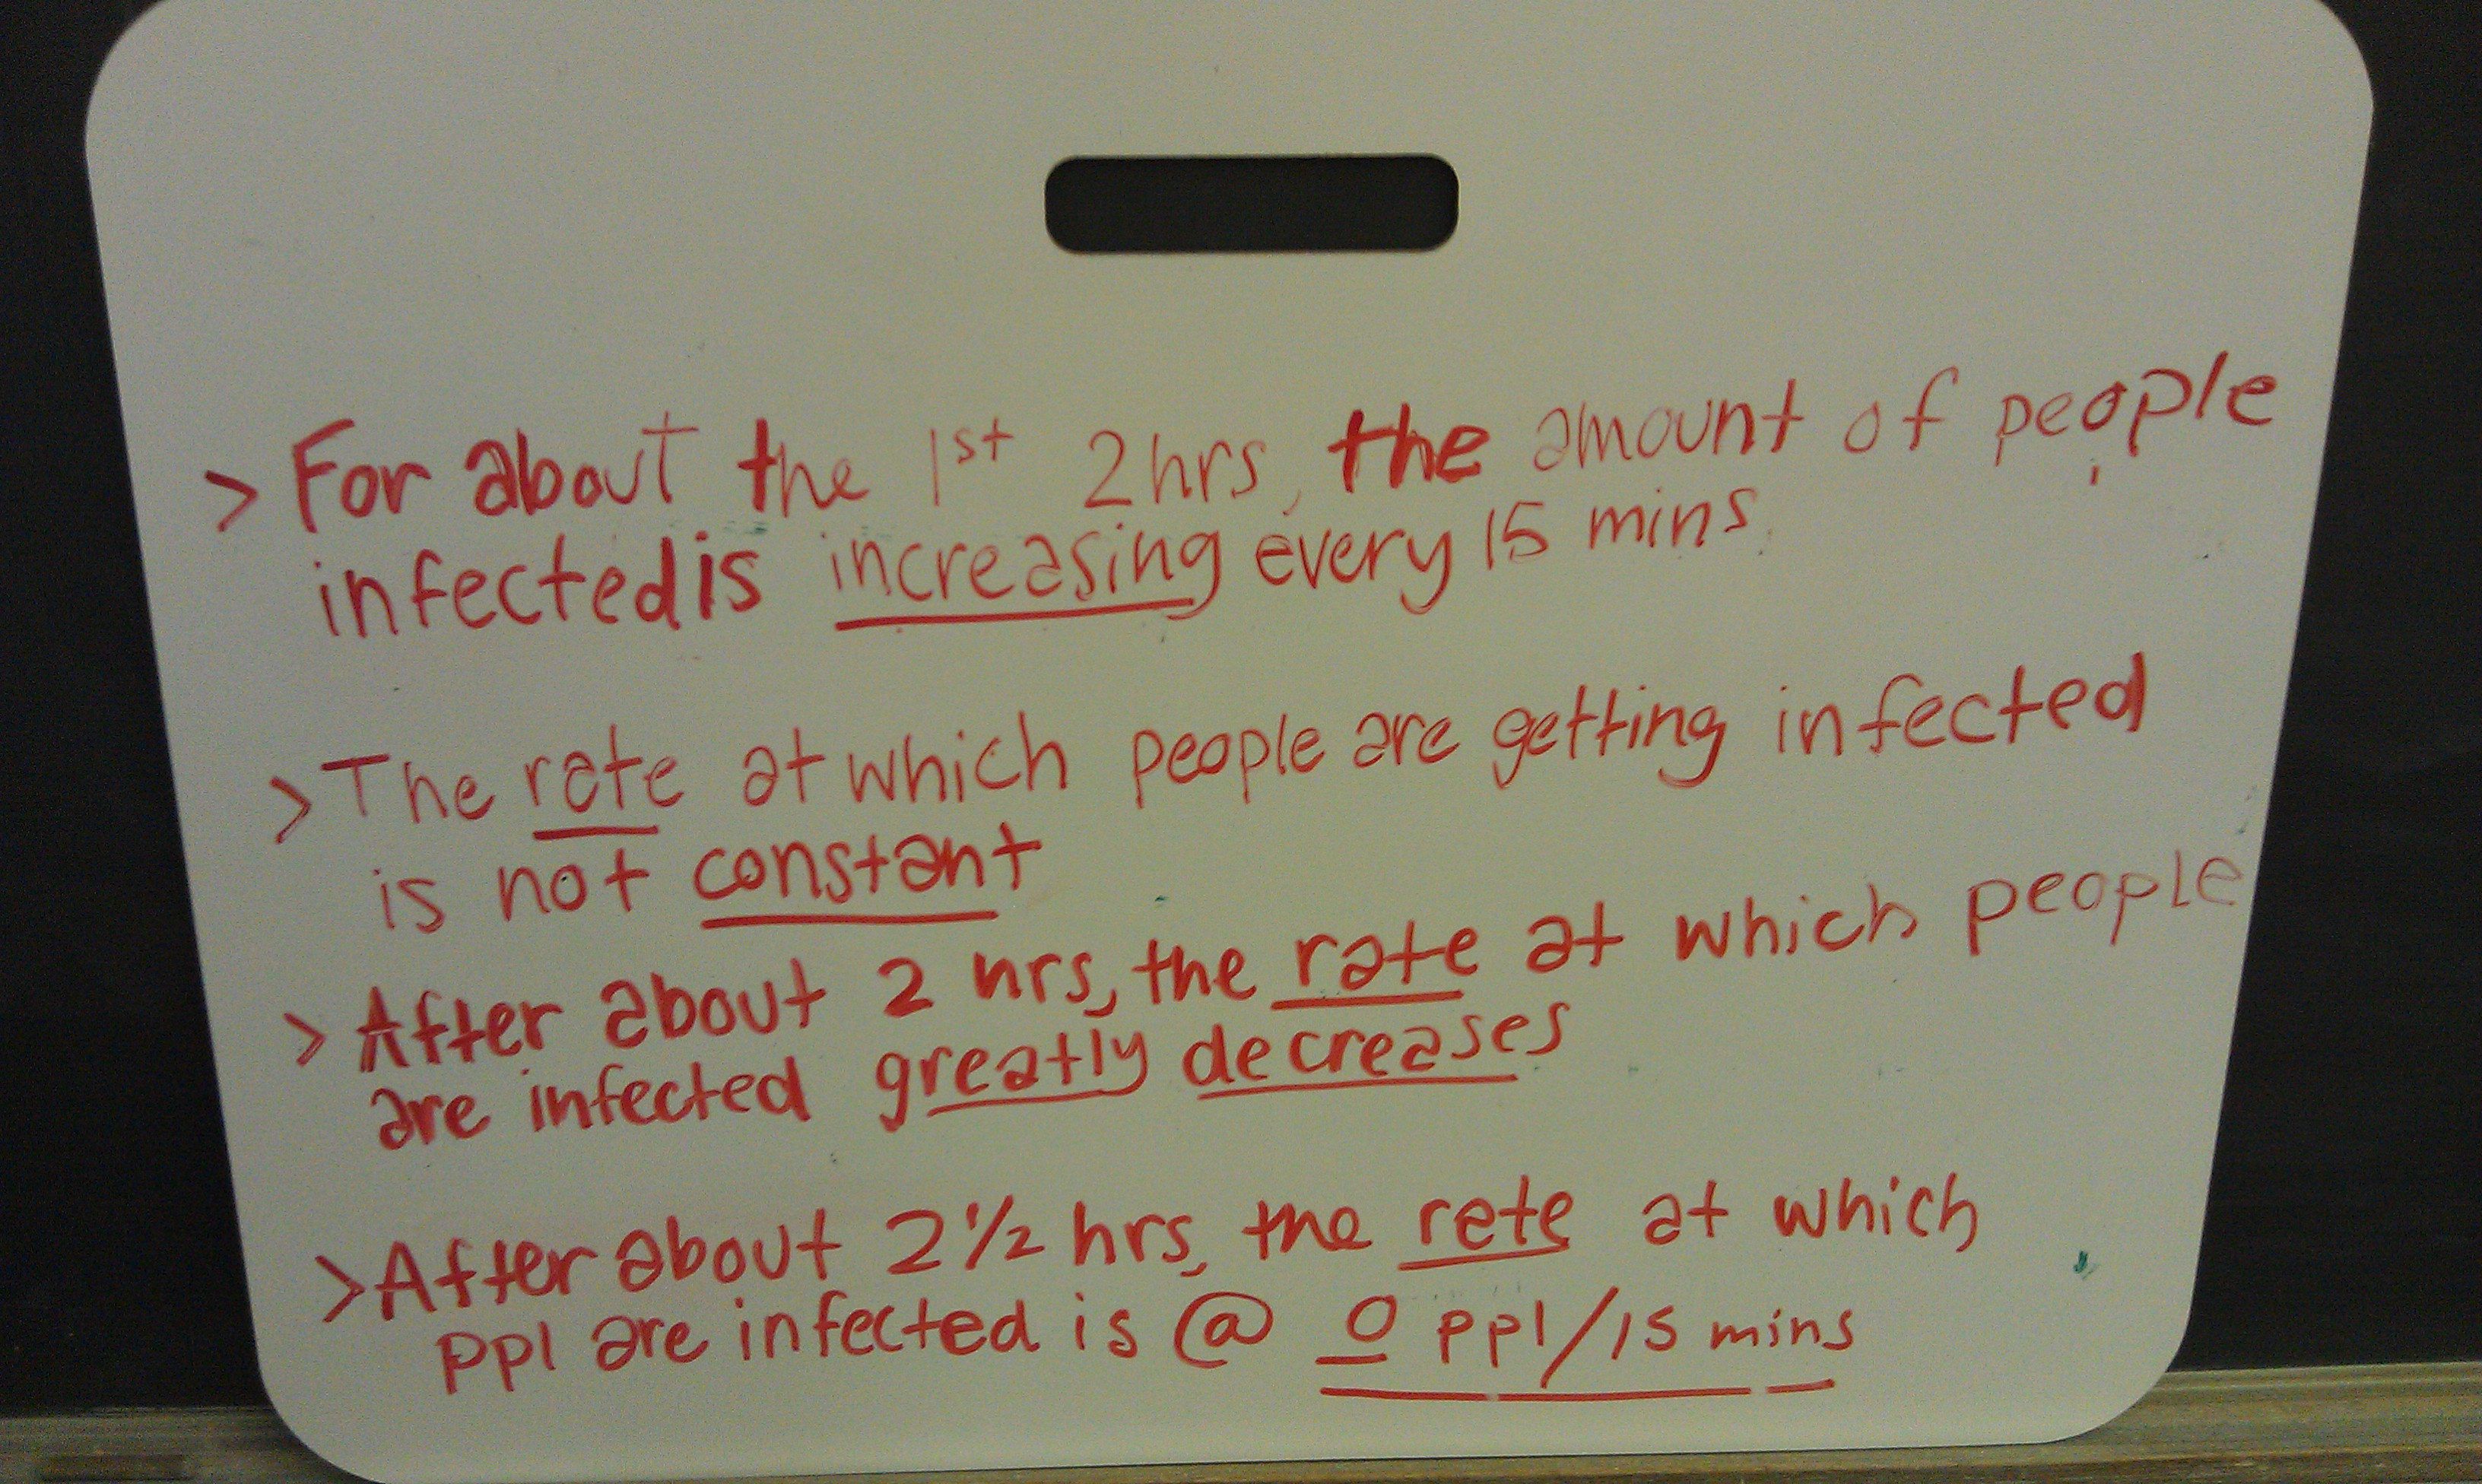 > For about the 1st 2hrs, the amount of people
infected is increasing every 15 mins.
> The rate at which people are getting infected
is not constant
> After about 2 hrs, the rate at which people
are infected greatly decreases
> After about 2 1/2 hrs, the rate at which
ppl are infected is @ 0 ppl/15 mins